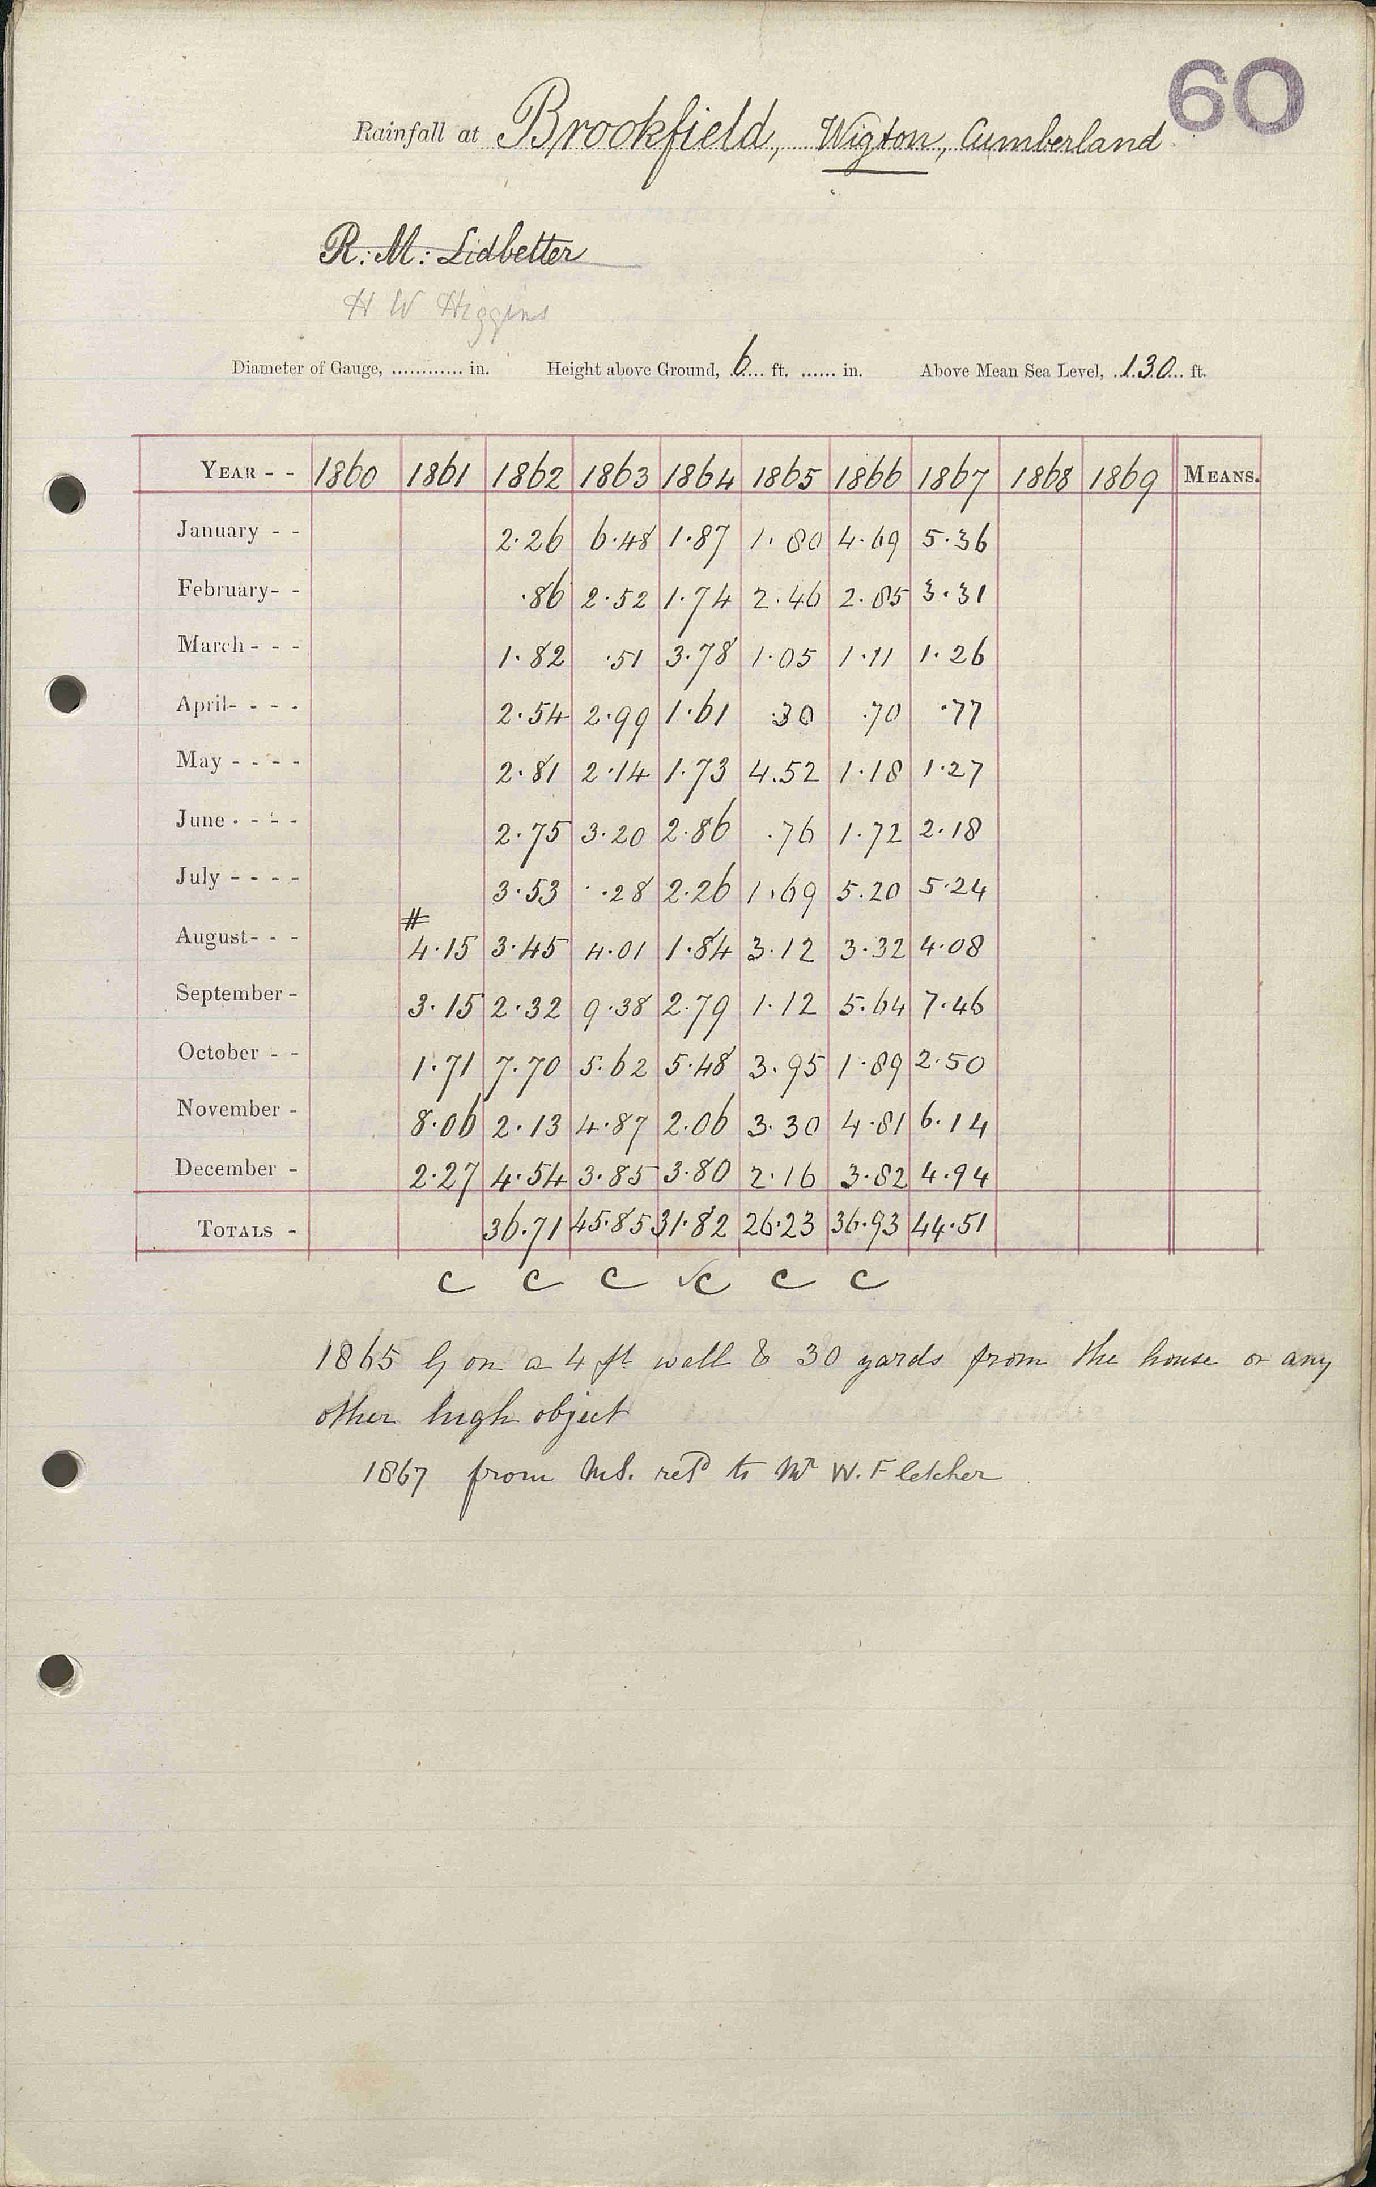 60
Rainfall at Brookfield, Wigton, Cumberland
R. M. Lidbetter
H W Higgins
Diameter of Gauge, ............ in. Height above Ground, 6 ft. ...... in. Above Mean Sea Level, 130 ft.
YEAR - - 1860 1861 1862 1863 1864 1865 1866 1867 1868 1869 MEANS.
January - - 2.26 6.48 1.87 1.80 4.69 5.36
February - - .86 2.52 1.74 2.46 2.85 3.31
March - - - 1.82 .51 3.78 1.05 1.11 1.26
April - - - - 2.54 2.99 1.61 .30 .70 .77
May - - - - 2.81 2.14 1.73 4.52 1.18 1.27
June - - - - 2.75 3.20 2.86 .76 1.72 2.18
July - - - - 3.53 .28 2.26 1.69 5.20 5.24
#
August - - - 4.15 3.45 4.01 1.84 3.12 3.32 4.08
September - 3.15 2.32 9.38 2.79 1.12 5.64 7.46
October - - 1.71 7.70 5.62 5.48 3.95 1.89 2.50
November - 8.06 2.13 4.87 2.06 3.30 4.81 6.14
December - 2.27 4.54 3.85 3.80 2.16 3.82 4.94
TOTALS - 36.71 45.85 31.82 26.23 36.93 44.51
C C C ✓C C C
1865 G on a 4 ft wall & 30 yards from the house or any
other high object
1867 from MS. retd to Mr W. Fletcher